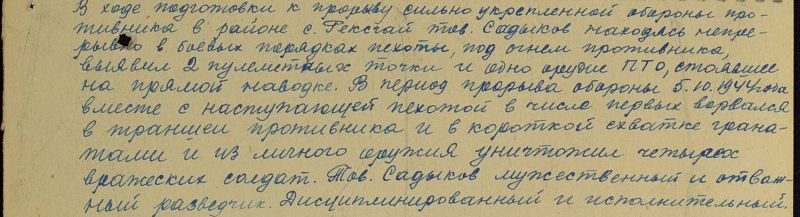 В ходе подготовки к прорыву сильно укрепленной обороны про-
тивника в районе с. Гексгай тов. Садыков находясь непре-
рывно в боевых порядках пехоты, под огнем противника,
выявил 2 пулеметных точки и одно орудие ПТО, стоявшее
на прямой наводке. В период прорыва обороны 5.10.1944 года
вместе с наступающей пехотой в числе первых ворвался
в траншеи противника и в короткой схватке грана-
тами и из личного оружия уничтожил четырех
вражеских солдат. Тов. Садыков мужественный и отваж-
ный разведчик. Дисциплинированный и исполнительный.